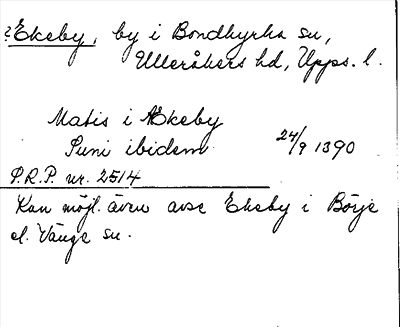 ? Ekeby, by i Bondkyrka sn,
Ulleråkers hd, Upps. l.
Matis i Ækeby
Suni ibidem 24/9 1390
P.R.P. nr. 2514
Kan möjl. även avse Ekeby i Börje
el. Vänge sn.